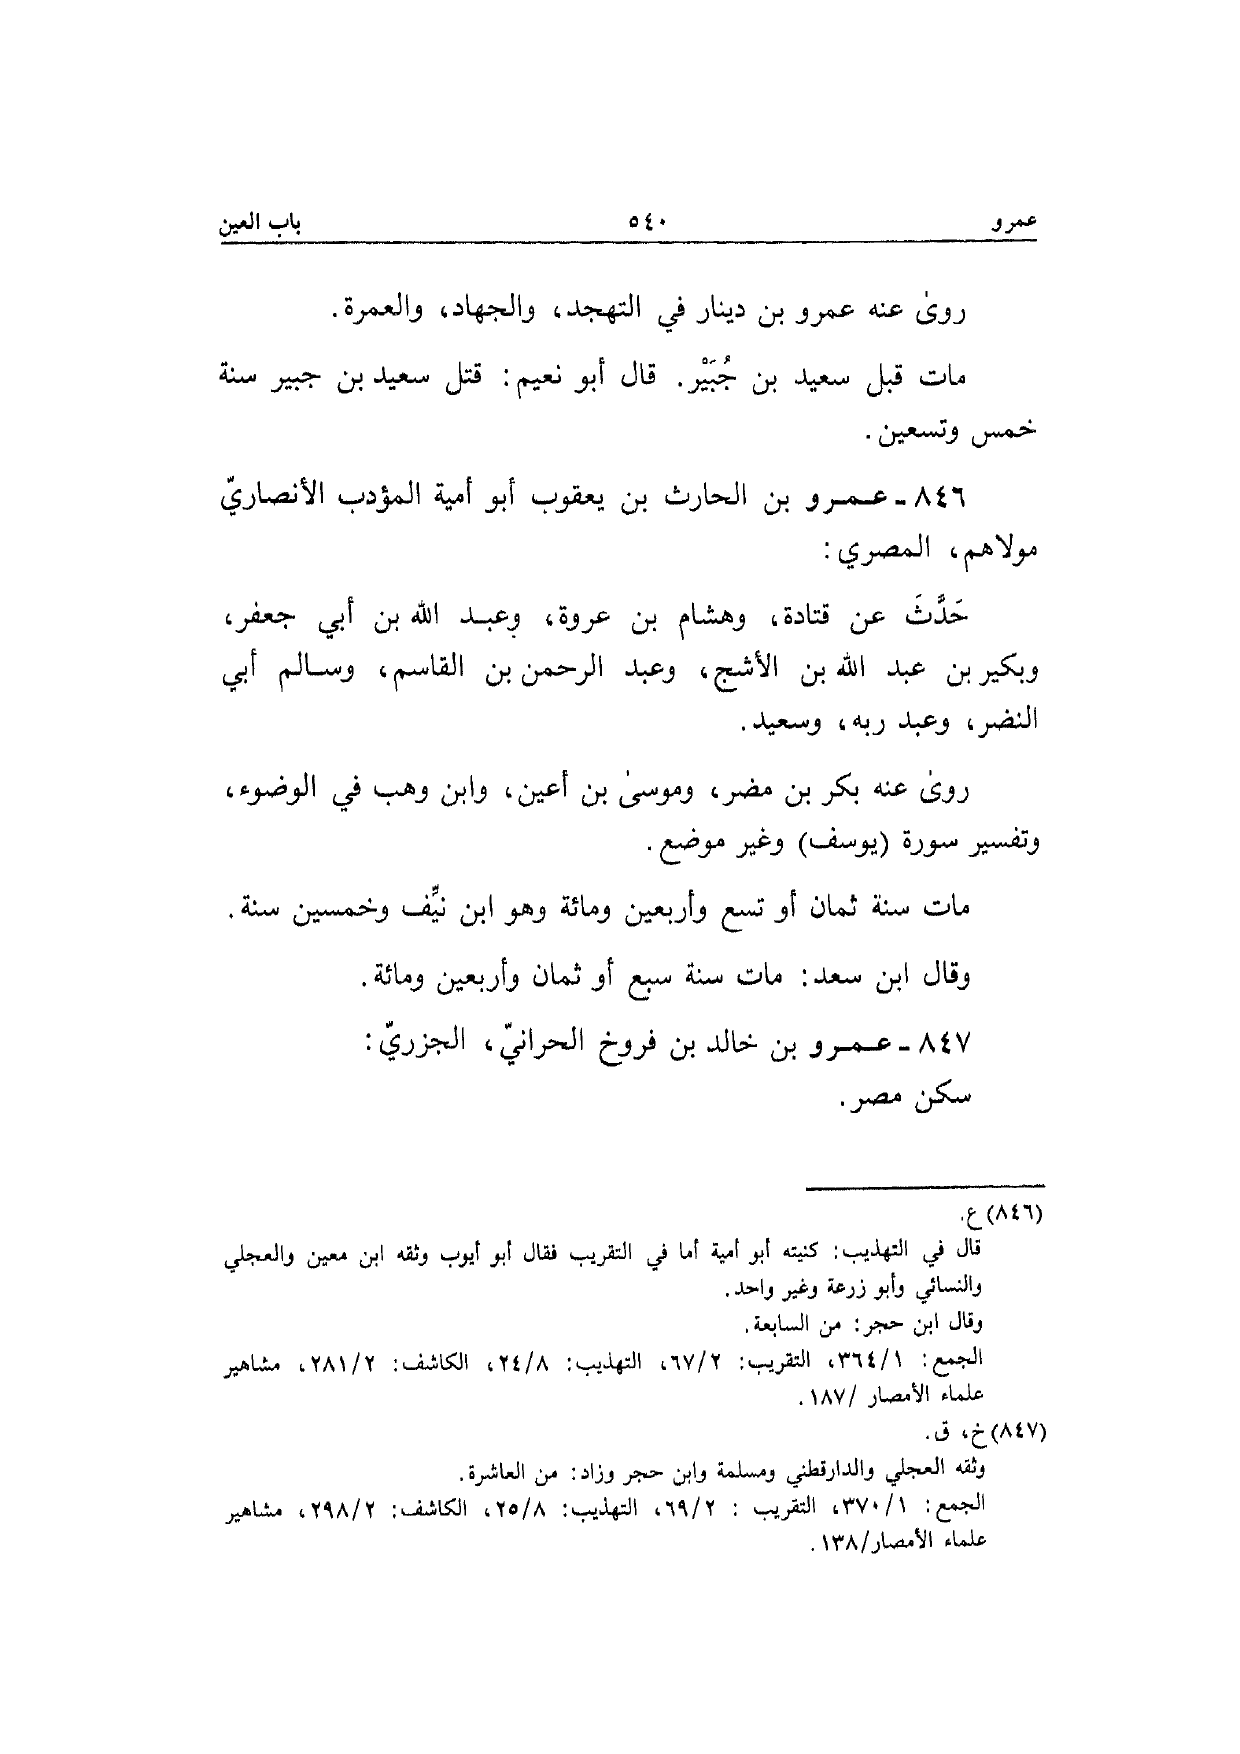 عمرو ٥٤٠ باب العين
روىٰ عنه عمرو بن دينار في التهجد، والجهاد، والعمرة.
مات قبل سعيد بن جُبَيْر. قال أبو نعيم: قتل سعيد بن جبير سنة
خمس وتسعين.
٨٤٦ - عمرو بن الحارث بن يعقوب أبو أمية المؤدب الأنصاريّ
مولاهم، المصري:
حَدَّثَ عن قتادة، وهشام بن عروة، وعبد الله بن أبي جعفر،
وبكير بن عبد الله بن الأشج، وعبد الرحمن بن القاسم، وسالم أبي
النضر، وعبد ربه، وسعيد.
روىٰ عنه بكر بن مضر، وموسىٰ بن أعين، وابن وهب في الوضوء،
وتفسير سورة (يوسف) وغير موضع.
مات سنة ثمان أو تسع وأربعين ومائة وهو ابن نيِّف وخمسين سنة.
وقال ابن سعد: مات سنة سبع أو ثمان وأربعين ومائة.
٨٤٧ - عمرو بن خالد بن فروخ الحرانيّ، الجزريّ:
سكن مصر.
(٨٤٦) ع.
قال في التهذيب: كنيته أبو أمية أما في التقريب فقال أبو أيوب وثقه ابن معين والعجلي
والنسائي وأبو زرعة وغير واحد.
وقال ابن حجر: من السابعة.
الجمع: ٣٦٤/١، التقريب: ٦٧/٢، التهذيب: ٢٤/٨، الكاشف: ٢٨١/٢، مشاهير
علماء الأمصار /١٨٧.
(٨٤٧) خ، ق.
وثقه العجلي والدارقطني ومسلمة وابن حجر وزاد: من العاشرة.
الجمع: ٣٧٠/١، التقريب : ٦٩/٢، التهذيب: ٢٥/٨، الكاشف: ٢٩٨/٢، مشاهير
علماء الأمصار/١٣٨.